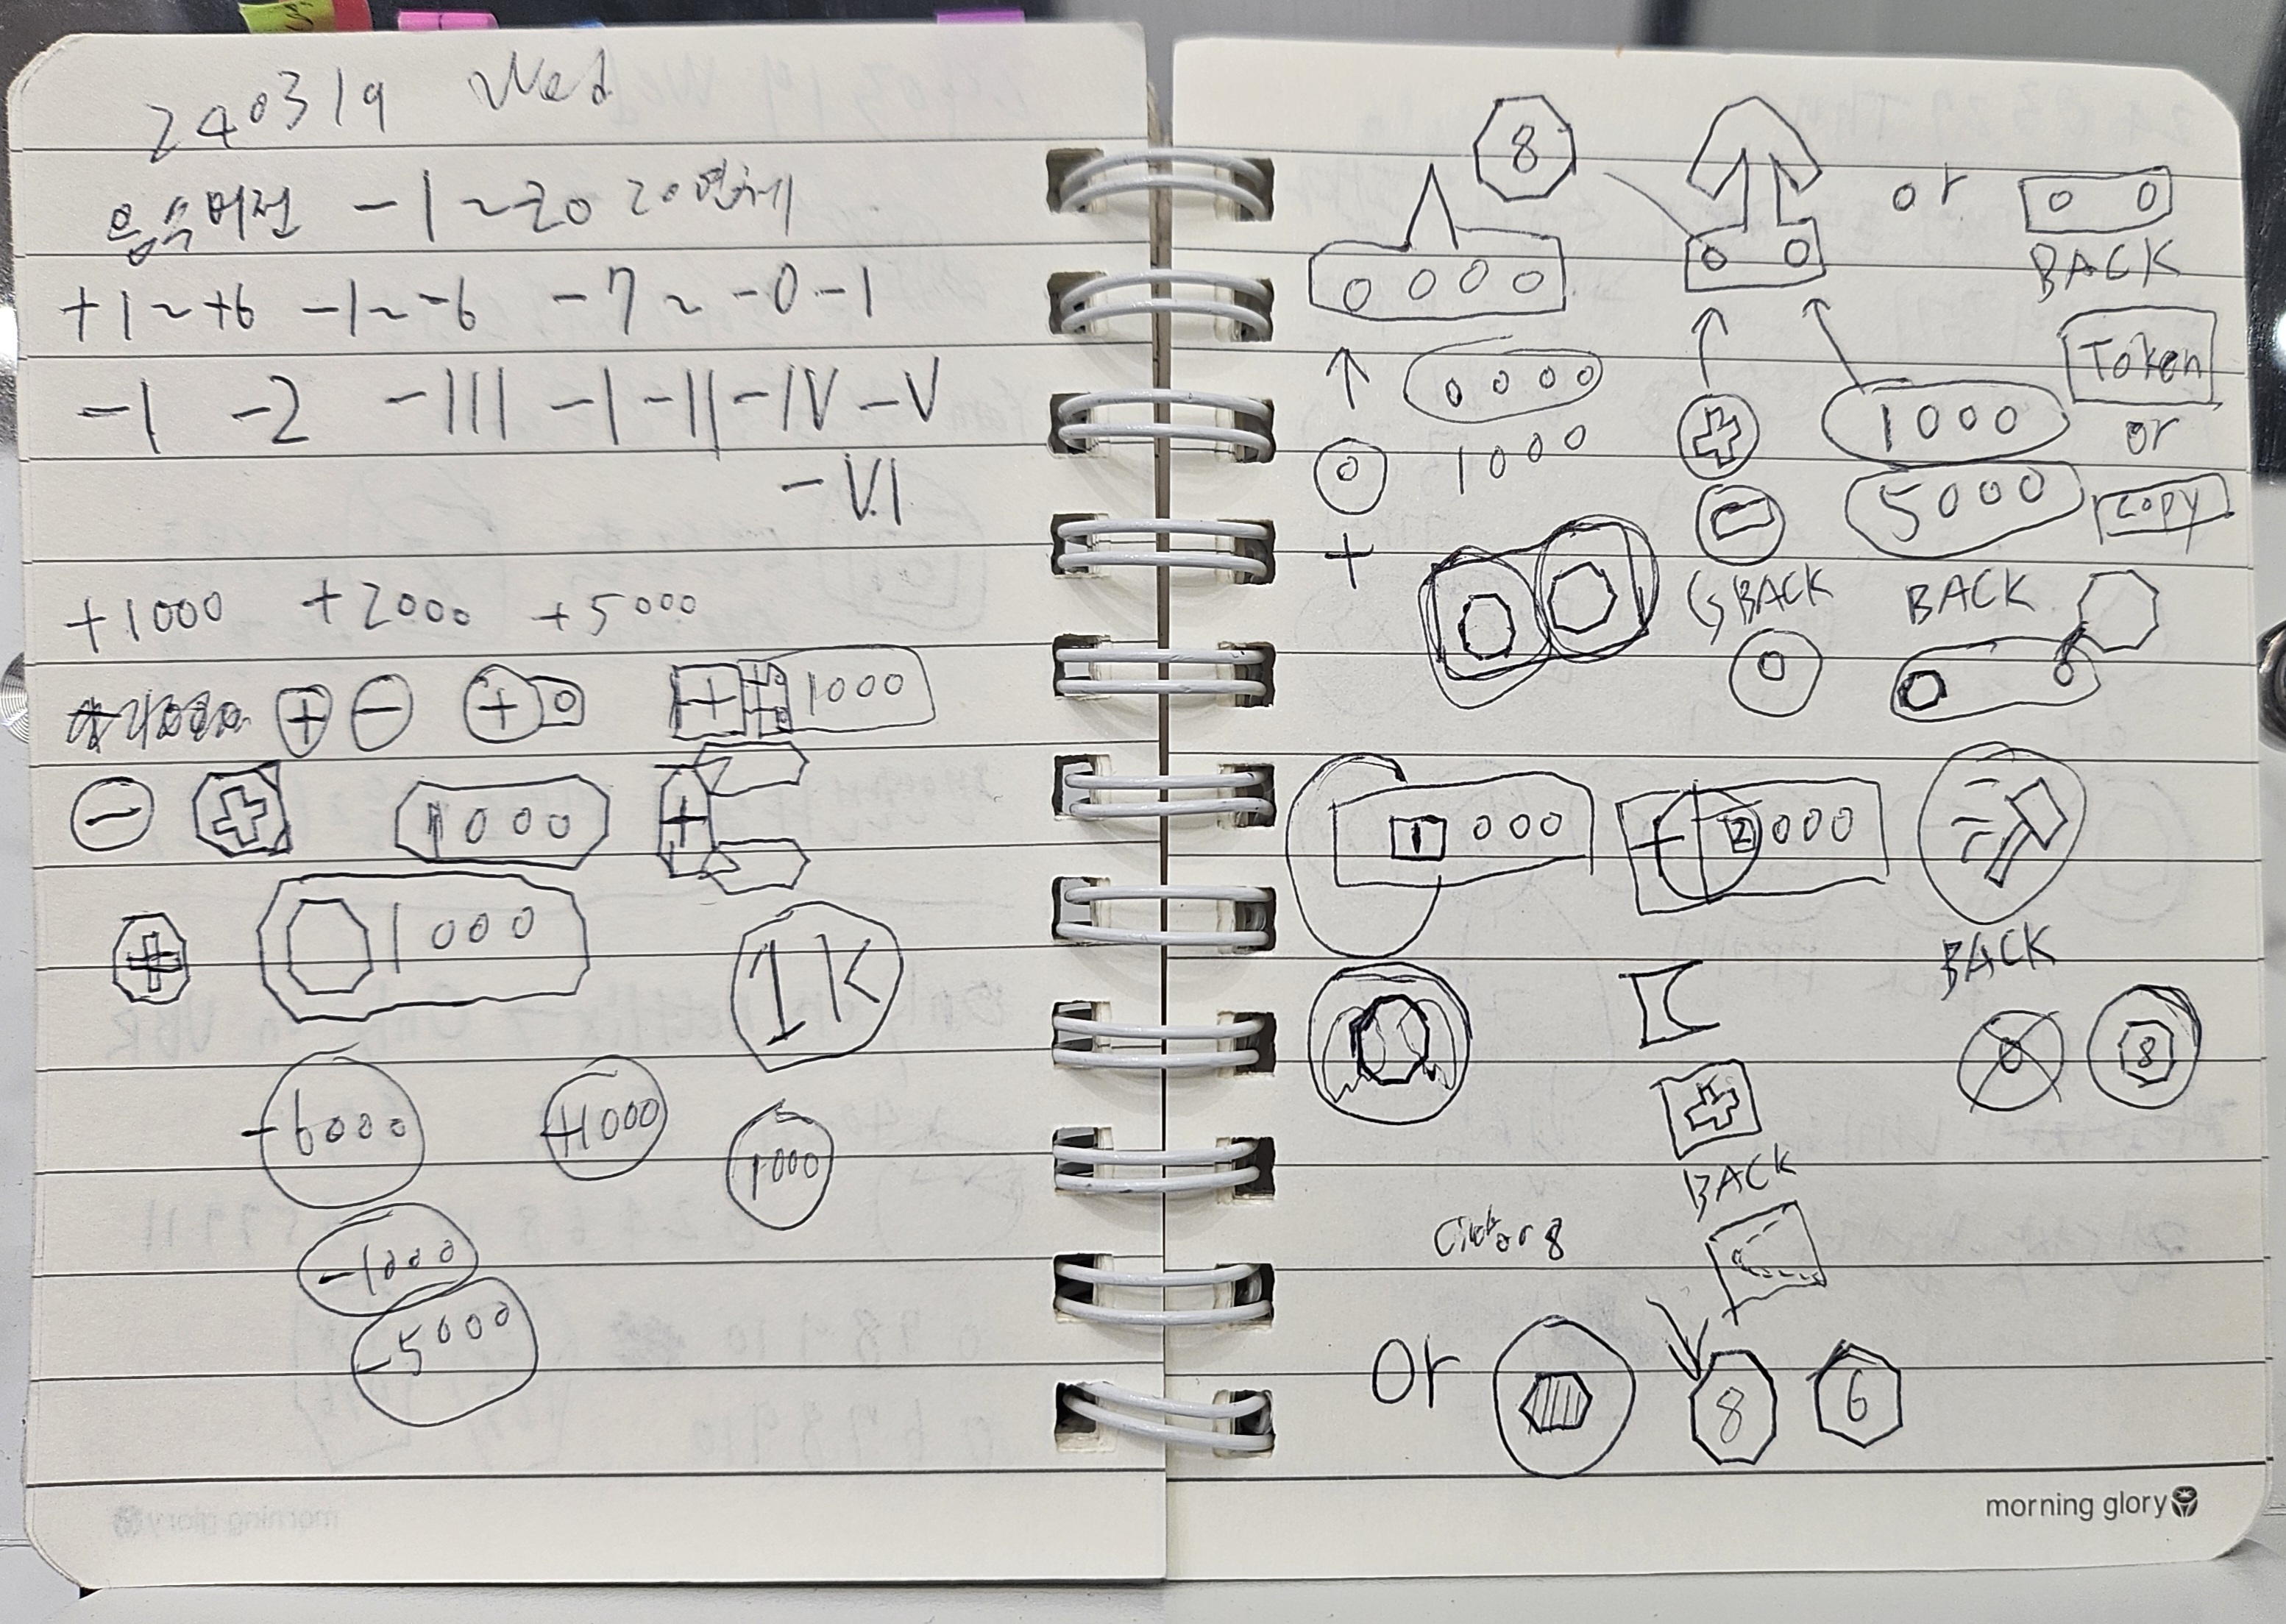 240319 Wed
음수버전 -1~20 20면체
+1~+6 -1~-6 -7~-0-1
-1 -2 -III -I -II -IV -V
-VI
+1000 +2000 +5000
+ - + 0 + 1000
- + 1000 +
+ 1000 1K
-6000 +1000 1000
-1000
-5000
8 or
0000 00 00
BACK
0000 Token
0 1000 + 1000 or
+ - 5000 copy
BACK BACK
1000 + 2000
BACK
+ 0 8
BACK
or 8
or 8 6
morning glory